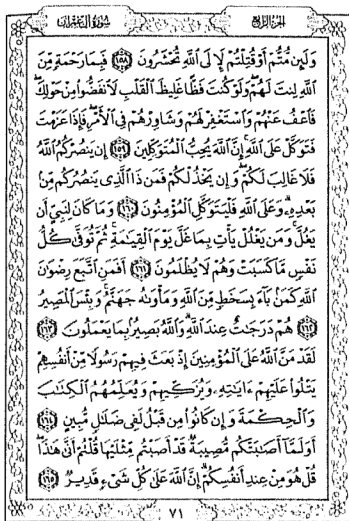 سورة آل عمران الجزء الرابع
وَلَئِن مُّتُّمْ أَوْ قُتِلْتُمْ لَإِلَى اللَّهِ تُحْشَرُونَ ١٥٨ فَبِمَا رَحْمَةٍ مِّنَ
اللَّهِ لِنتَ لَهُمْ وَلَوْ كُنتَ فَظًّا غَلِيظَ الْقَلْبِ لَانفَضُّوا مِنْ حَوْلِكَ
فَاعْفُ عَنْهُمْ وَاسْتَغْفِرْ لَهُمْ وَشَاوِرْهُمْ فِي الْأَمْرِ فَإِذَا عَزَمْتَ
فَتَوَكَّلْ عَلَى اللَّهِ إِنَّ اللَّهَ يُحِبُّ الْمُتَوَكِّلِينَ ١٥٩ إِن يَنصُرْكُمُ اللَّهُ
فَلَا غَالِبَ لَكُمْ وَإِن يَخْذُلْكُمْ فَمَن ذَا الَّذِي يَنصُرُكُم مِّن
بَعْدِهِ وَعَلَى اللَّهِ فَلْيَتَوَكَّلِ الْمُؤْمِنُونَ ١٦٠ وَمَا كَانَ لِنَبِيٍّ أَن
يَغُلَّ وَمَن يَغْلُلْ يَأْتِ بِمَا غَلَّ يَوْمَ الْقِيَامَةِ ثُمَّ تُوَفَّى كُلُّ
نَفْسٍ مَّا كَسَبَتْ وَهُمْ لَا يُظْلَمُونَ ١٦١ أَفَمَنِ اتَّبَعَ رِضْوَانَ
اللَّهِ كَمَن بَاءَ بِسَخَطٍ مِّنَ اللَّهِ وَمَأْوَاهُ جَهَنَّمُ وَبِئْسَ الْمَصِيرُ
١٦٢ هُمْ دَرَجَاتٌ عِندَ اللَّهِ وَاللَّهُ بَصِيرٌ بِمَا يَعْمَلُونَ ١٦٣
لَقَدْ مَنَّ اللَّهُ عَلَى الْمُؤْمِنِينَ إِذْ بَعَثَ فِيهِمْ رَسُولًا مِّنْ أَنفُسِهِمْ
يَتْلُوا عَلَيْهِمْ ءَايَاتِهِ وَيُزَكِّيهِمْ وَيُعَلِّمُهُمُ الْكِتَابَ
وَالْحِكْمَةَ وَإِن كَانُوا مِن قَبْلُ لَفِي ضَلَالٍ مُّبِينٍ ١٦٤
أَوَلَمَّا أَصَابَتْكُم مُّصِيبَةٌ قَدْ أَصَبْتُم مِّثْلَيْهَا قُلْتُمْ أَنَّى هَذَا
قُلْ هُوَ مِنْ عِندِ أَنفُسِكُمْ إِنَّ اللَّهَ عَلَى كُلِّ شَيْءٍ قَدِيرٌ ١٦٥
٧١